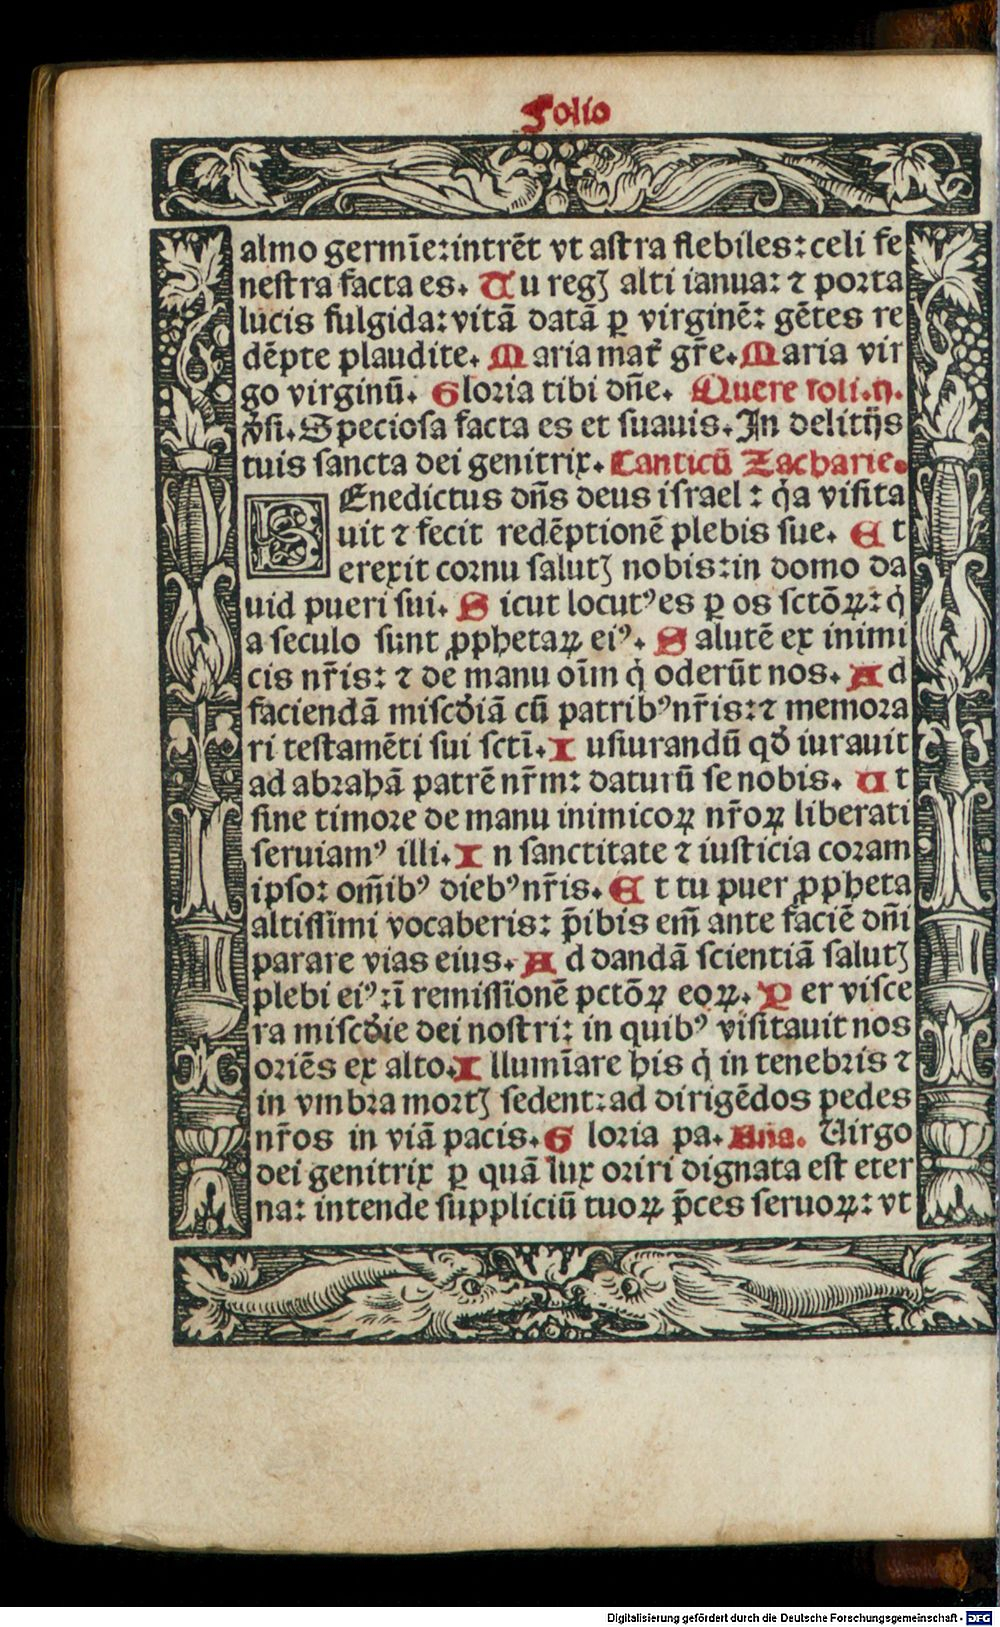 Folio
almo germīe: intrēt vt astra flebiles: celi fe
nestra facta es. Tu regꝭ alti ianua: ⁊ porta
lucis fulgida: vitā datā ꝑ virginē: gētes re
dēpte plaudite. Maria mat̄ gr̄e. Maria vir
go virginū. Gloria tibi dn̄e. Quere foli. ij.
v̓si. Speciosa facta es et suauis. In delitijs
tuis sancta dei genitrix. Canticū Zacharie.
BEnedictus dn̄s deus israel: q̇a visita
uit ⁊ fecit redēptionē plebis sue. Et
erexit cornu salutꝭ nobis: in domo da
uid pueri sui. Sicut locutꝰ es ꝑ os sctōꝝ: q̇
a seculo sunt ꝓphetaꝝ eiꝰ. Salutē ex inimi
cis nr̄is: ⁊ de manu oīm q̇ oderūt nos. Ad
faciendā misc̄diā cū patribꝰ nr̄is: ⁊ memora
ri testamēti sui sctī. Iusiurandū qd̄ iurauit
ad abrahā patrē nr̄m: daturū se nobis. Ut
sine timore de manu inimicoꝝ nr̄oꝝ liberati
seruiamꝰ illi. In sanctitate ⁊ iusticia coram
ipso: om̄ibꝰ diebꝰ nr̄is. Et tu puer ꝓpheta
altissimi vocaberis: p̄ibis em̄ ante faciē dn̄i
parare vias eius. Ad dandā scientiā salutꝭ
plebi eiꝰ: ī remissionē pctōꝝ eoꝝ. Per visce
ra misc̄die dei nostri: in quibꝰ visitauit nos
oriēs ex alto. Illumīare his q̇ in tenebris ⁊
in vmbra mortꝭ sedent: ad dirigēdos pedes
nr̄os in viā pacis. Gloria pa. Aña. Uirgo
dei genitrix ꝑ quā lux oriri dignata est eter
na: intende suppliciū tuoꝝ p̄ces seruoꝝ: vt
Digitalisierung gefördert durch die Deutsche Forschungsgemeinschaft - DFG